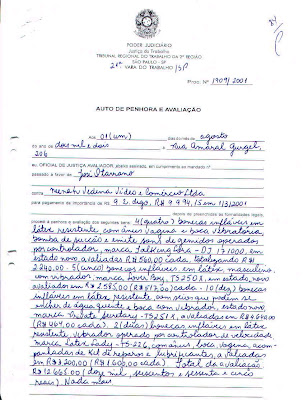 PODER JUDICIÁRIO
Justiça do Trabalho
TRIBUNAL REGIONAL DO TRABALHO DA 2ª REGIÃO
SÃO PAULO - SP
VARA DO TRABALHO / SP
Proc. Nº 1909/2001
AUTO DE PENHORA E AVALIAÇÃO
Aos 01 (um) dias do mês de agosto
do ano de dois mil e dois, à rua Amaral Gurgel,
206
O OFICIAL DE JUSTIÇA AVALIADOR, abaixo assinado, em cumprimento ao mandado nº
passado a favor de José
contra Vídeo e Comércio Ltda
para pagamento da importância de R$ 9. digo, R$ 9.994,15 em 1/3/2001
procedi à penhora e avaliação dos seguintes bens: 4 (quatro) bonecas infláveis em
látex resistente, com ânus, vagina e boca vibratória
bomba de sucção e emite sons de gemidos operados
por controlador, marca - DJ 171000. em
estado novo, avaliadas R$ 560,00 cada, totalizando R$
2240,00 - 5 (cinco) bonecos infláveis, em látex, masculino,
com vibrador, marca Lover Boy, TS 2508, em estado novo,
avaliados em R$ 2.585,00 (R$ 517,00 cada) - 10 (dez) bonecas
infláveis em látex resistente, com seios que podem se
encher de água quente e boca com vibrador, estado novo,
marca Secretary - avaliadas em R$ 4.640,00
(R$ 464,00 cada). 2 (duas) bonecas infláveis em látex
resistente, vibrador operado por controlador de velocidade,
marca Latex Lady - TS-226, com ânus, boca, vagina, acom-
panhadas de kit de reparos e lubrificantes, avaliadas
em R$ 3.200,00 (R$ 1.600,00 cada) Total da avaliação
R$ 12.665,00 (doze mil, seiscentos e sessenta e cinco
reais) Nada mais